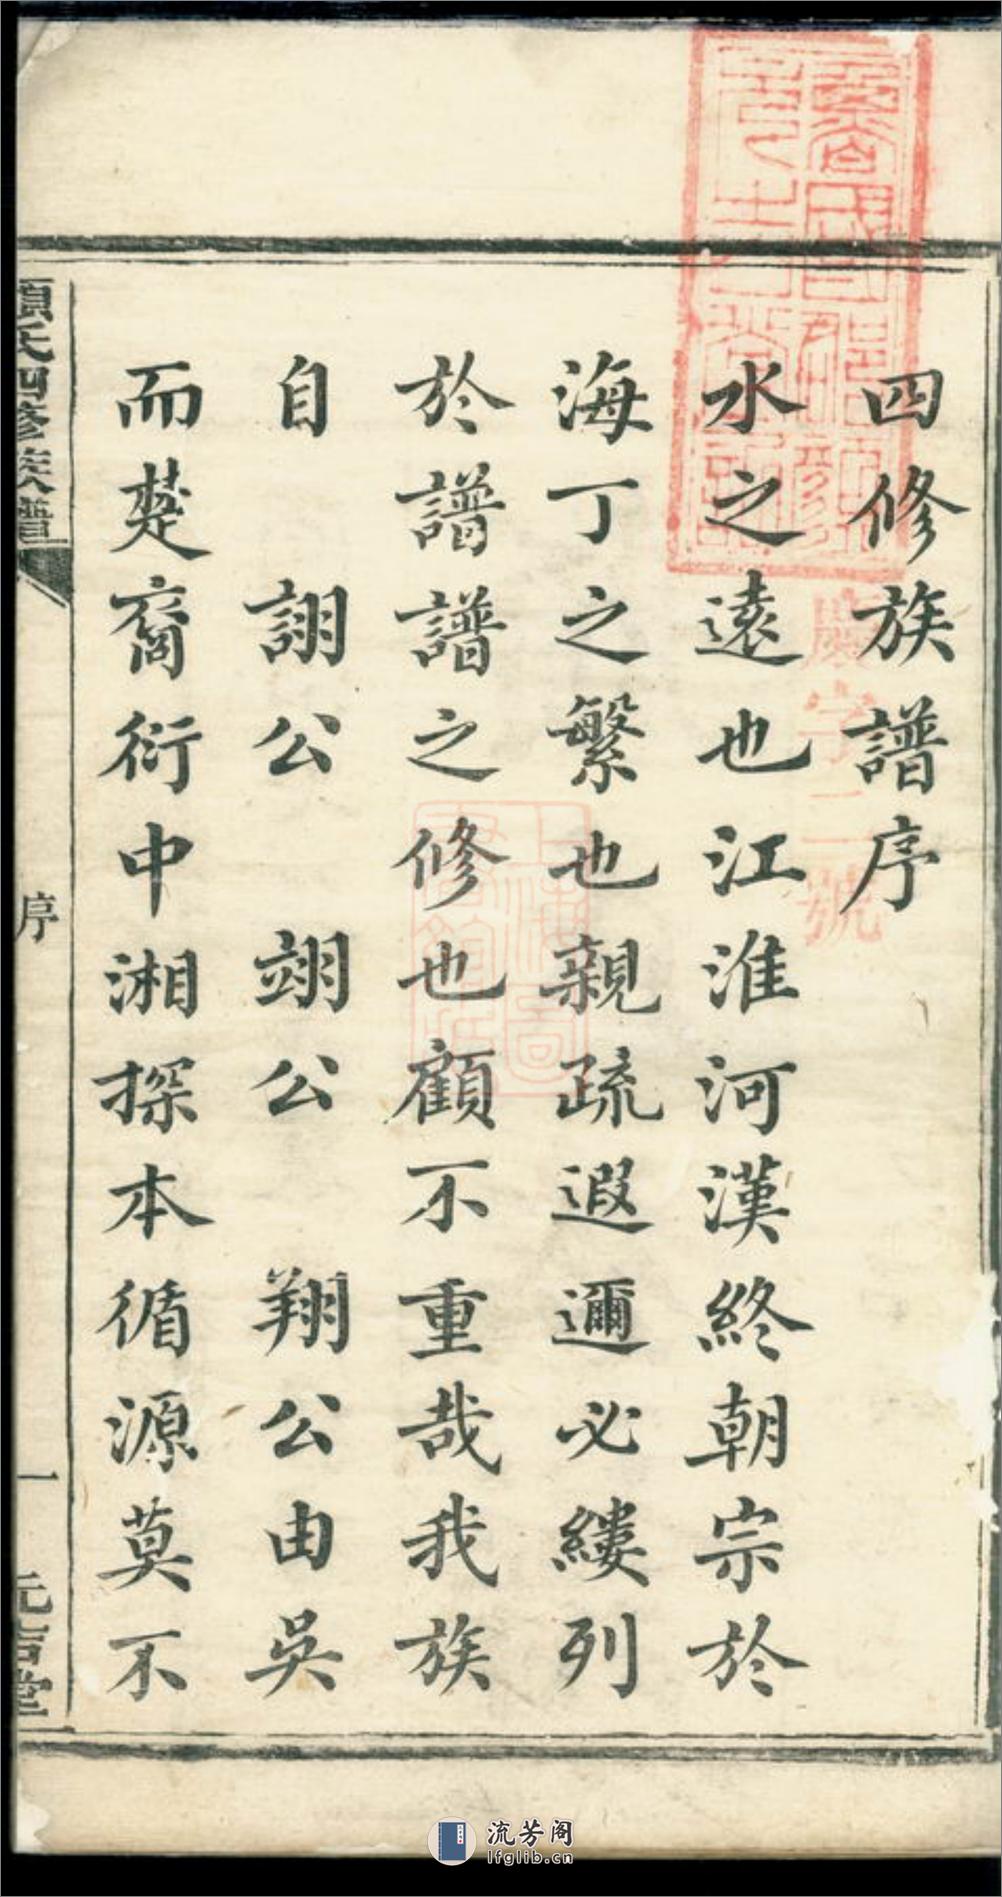 四修族譜序
水之遠也江淮河漢終朝宗於
海丁之繁也親疏遐邇必縷列
於譜譜之修也顧不重哉我族
自 詡公 翊公 翔公由吳
而楚裔衍中湘探本循源莫不
氏四修族譜
序
一
元吉堂
慶字二號
流芳阁
lfglib.cn